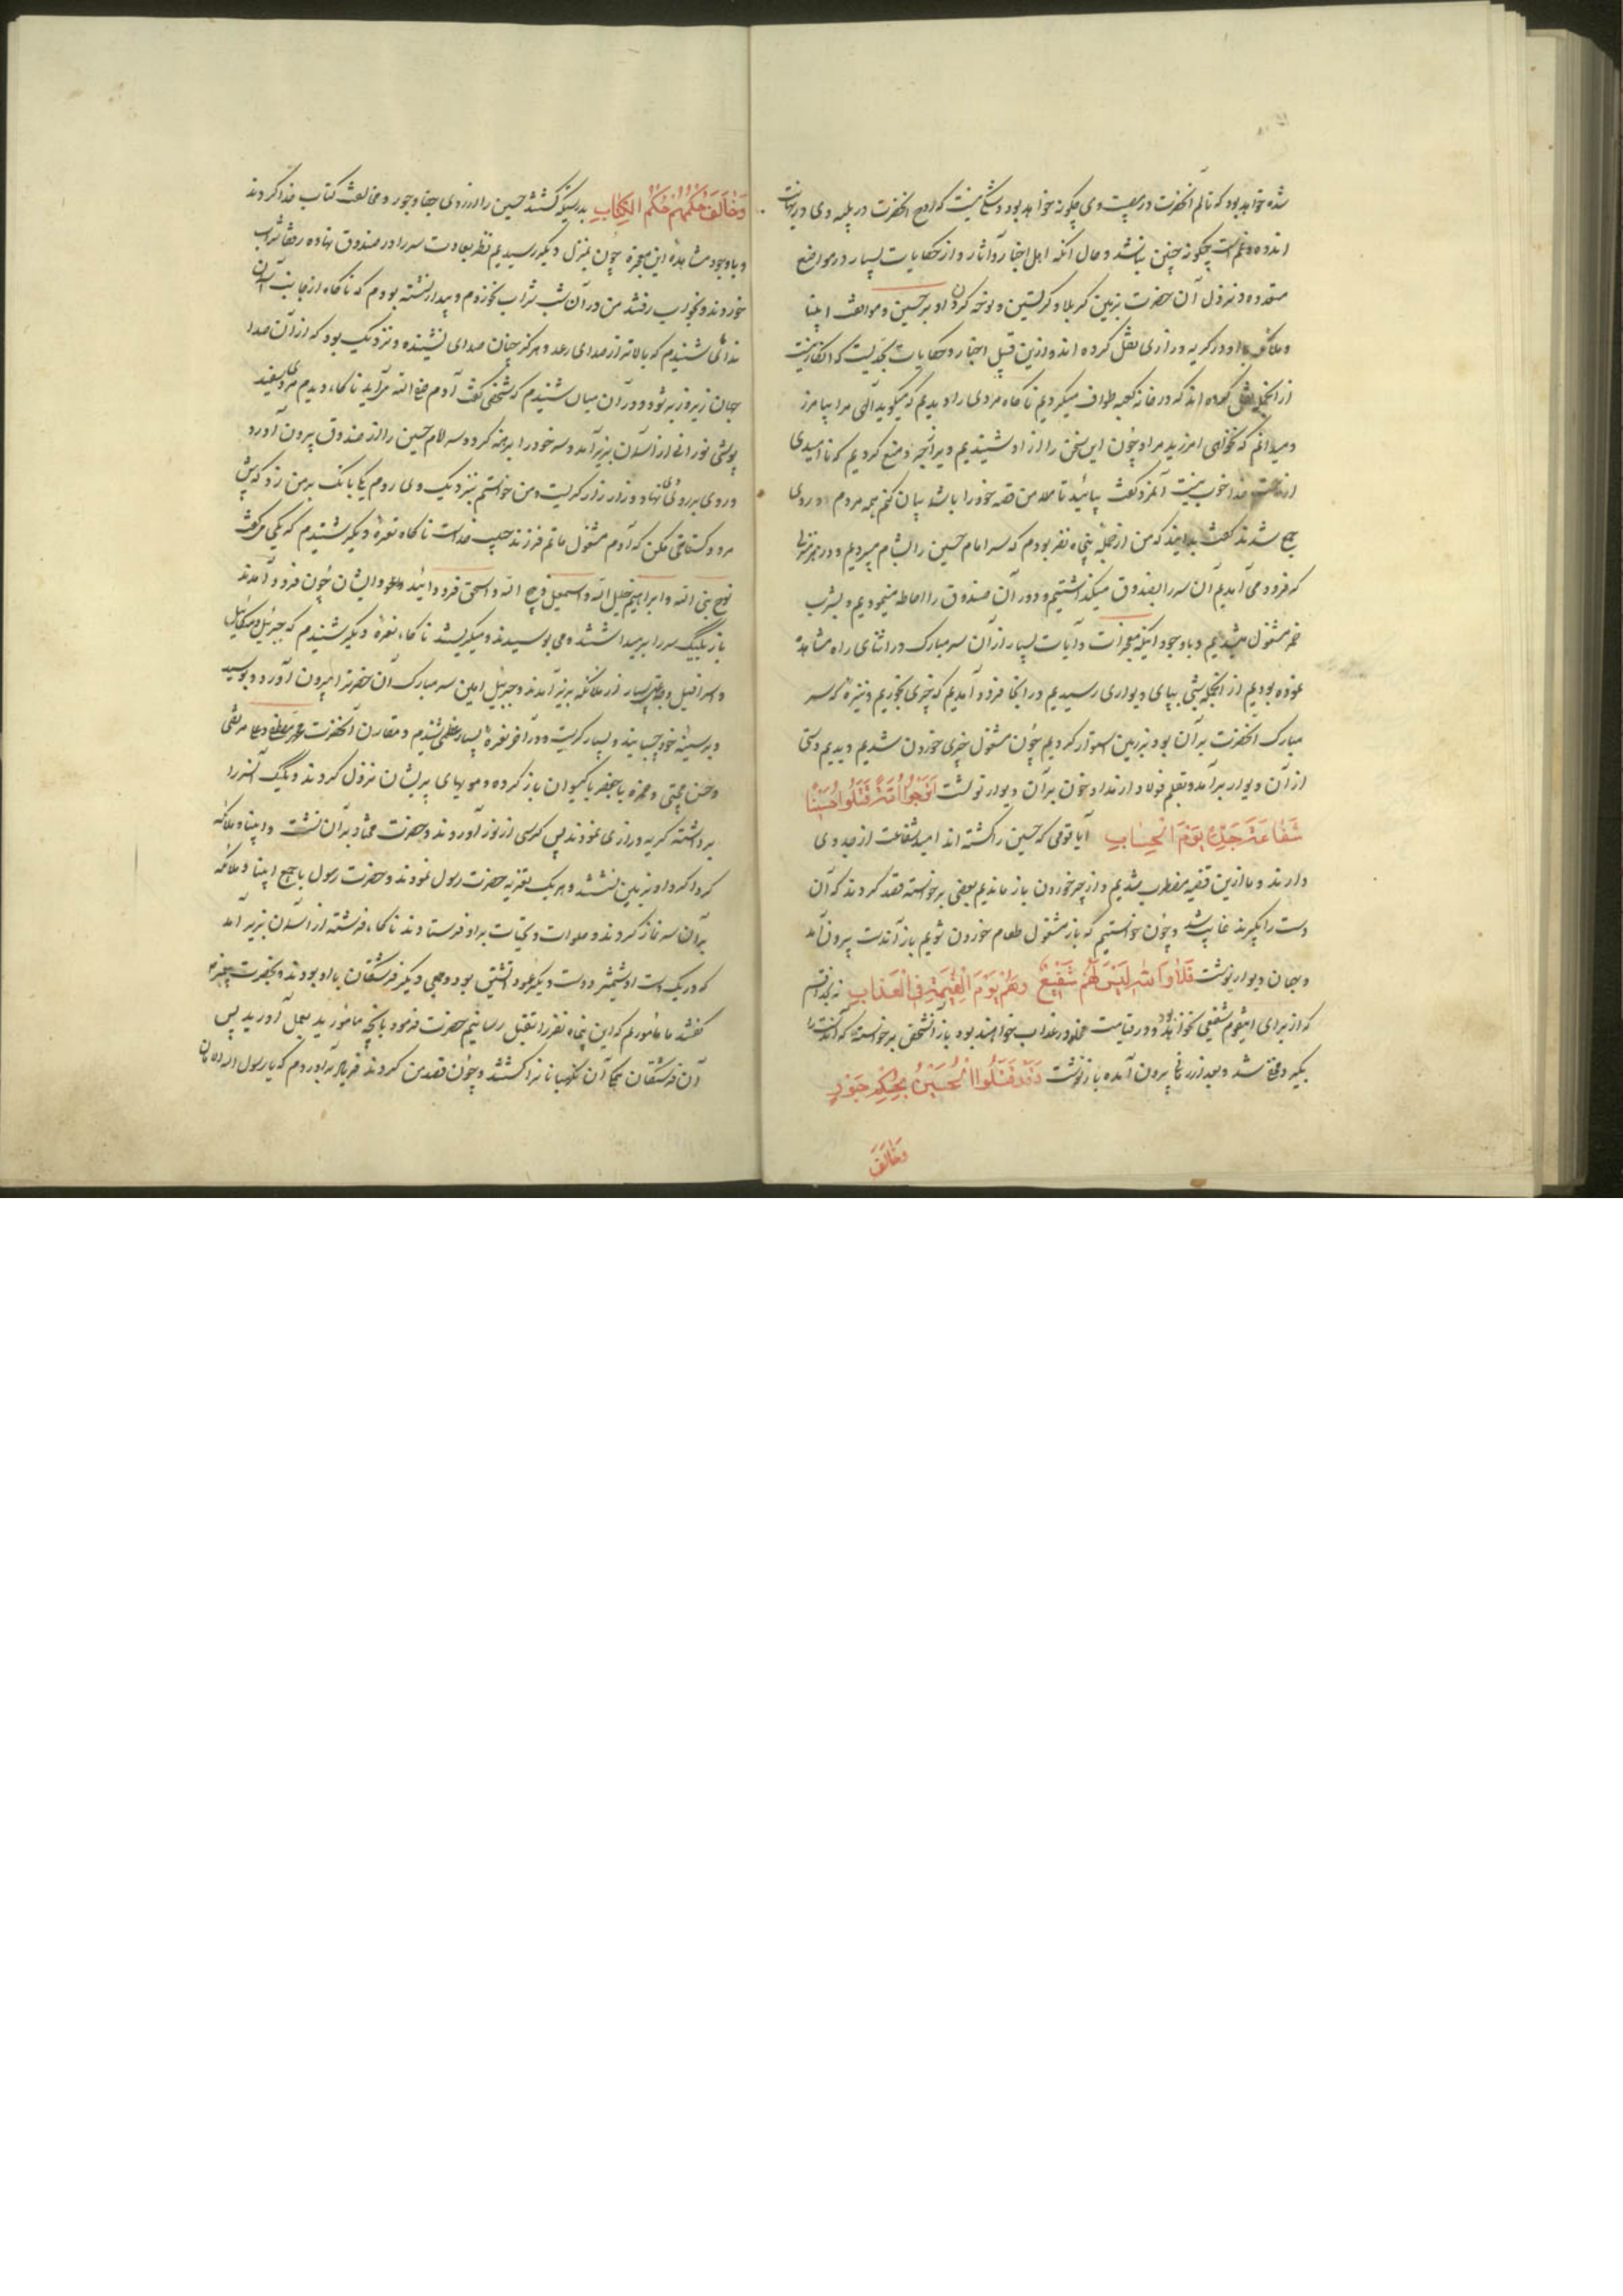 شده خواهد بود که تالم آنحضرت در مصیبت وی چگونه خواهد بود و شک نیست که روح آنحضرت در بلیه وی در نهایت
اندوه و غم است چگونه چنین نباشد و حال آنکه اهل اخبار و آثار و از حکایات بسیار در مواضع
متعدده و نزول آن حضرت بزمین کربلا و گریستن و نوحه کردن او بر حسین و موافقت انبیا
و ملائکه با او در گریه و زاری نقل کرده اند و ازین قبیل اخبار و حکایات بحدیست که انکار نیست
از آنجمله نقل کرده اند که در خانه کعبه طواف میکردیم ناگاه مردی را دیدیم که میگوید الهی مرا بیامرز
و میدانم که نخواهی آمرزید مرا و چون این سخن را از او شنیدیم ویرا منع کردیم که ناامیدی
از رحمت خدا خوب نیست آنمرد گفت بیائید تا من قصه خود را با شما بیان کنم همه مردم بر وی
جمع شدند گفت بدانید که من از جمله پنجاه نفر بودم که سر امام حسین را بشام میبردیم و در هر منزلی
که فرود می آمدیم آن سر را بصندوق میگذاشتیم و دور آن صندوق را احاطه مینمودیم و بشرب
خمر مشغول میشدیم و باوجود اینکه معجزات و آیات بسیار از آن سر مبارک در اثنای راه مشاهده
نموده بودیم از آنجمله شبی بپای دیواری رسیدیم در آنجا فرود آمدیم که چیزی بخوریم و نیزه که سر
مبارک آنحضرت بر آن بود بزمین استوار کردیم چون مشغول چیزی خوردن شدیم دیدیم دستی
از آن دیوار برآمد و بقلم فولاد از مداد خون بر آن دیوار نوشت اَتَرْجُوا اُمَّةٌ قَتَلُوا حُسَیْنًا
شَفَاعَةَ جَدِّهِ یَوْمَ الْحِسَابِ آیا قومی که حسین را کشته اند امید شفاعت از جد وی
دارند و ما ازین قضیه مضطرب شدیم و از چیز خوردن باز ماندیم بعضی برخواسته قصد کردند که آن
دست را بگیرند غایب شد و چون خواستیم که باز مشغول طعام خوردن شویم باز آندست بیرون آمد
و بهمان دیوار نوشت فَلَا وَاللّٰهِ لَیْسَ لَهُمْ شَفِیْعٌ وَهُمْ یَوْمَ الْقِیٰمَةِ فِی الْعَذَابِ نه بخدا قسم
که از برای اینقوم شفیعی نخواهد بود و در قیامت مخلد در عذاب خواهند بود باز آنشخص برخواسته که آندست را
بگیرد مخفی شد و بعد از زمانی بیرون آمده باز نوشت وَقَدْ قَتَلُوا الْحُسَیْنَ بِحُکْمِ جَوْرٍ
وَخَالَفَ
وَخَالَفَ حُکْمُهُمْ حُکْمَ الْکِتَابِ بدرستیکه کشتند حسین را از روی جفا و جور و مخالفت کتاب خدا کردند
و باوجود مشاهده این معجزه چون بمنزل دیگر رسیدیم نظر بعادت سر را در صندوق نهاده رفقا شراب
خوردند و بخواب رفتند من در آن شب شراب نخوردم و بیدار نشسته بودم که ناگاه از جانب آسمان
ندائی شنیدم که بالاتر از صدای رعد و هرگز چنان صدای نشنیده و نزدیک بود که از آن صدا
جهان زیر و زبر شود و در آن میان شنیدم که شخصی گفت آدم صفی الله می آید ناگاه دیدم مردی سفید
پوشی نورانی از آسمان بزیر آمد و سر خود را برهنه کرد و سر امام حسین را از صندوق بیرون آورد
و روی بر روی نهاد و زار زار گریست و من خواستم بنزدیک وی روم یکی بانک بر من زد که پیش
مرو و گستاخی مکن که آدم مشغول ماتم فرزند حبیب خداست ناگاه نعره دیگر شنیدم که یکی میگفت
نوح نبی الله و ابراهیم خلیل الله و اسمعیل ذبیح الله و اسحق فرود آئید و ایشان چون فرود آمدند
باز یکیک سر را برمیداشتند و می بوسیدند و میگریستند ناگاه نعره دیگر شنیدم که جبرئیل و میکائیل
و اسرافیل و جمع بسیار از ملائکه بزیر آمدند و جبرئیل امین سر مبارک آن حضرت را بیرون آورد و بوسید
و بر سینه خود چسبانید و بسیار گریست و در آخر نعره بسیار عظیمی شنیدم و مقارن آنحضرت محمد مصطفی و علی مرتضی
و حسن مجتبی و حمزه با جعفر با گیسوان باز کرده و مویهای پریشان نزول کردند و یکیک آنسر را
برداشته گریه و زاری نمودند پس کرسی از نور آوردند و حضرت محمد بر آن نشست و انبیا و ملائکه
گرداگرد او بزمین نشستند و هر یک تعزیه حضرت رسول نمودند و حضرت رسول با جمیع انبیا و ملائکه
بر آن سر نماز کردند و صلوات و تحیات بر او فرستادند ناگاه فرشته از آسمان بزیر آمد
که در یک دست او شمشیر و دست دیگر عمود آتشین بود و جمعی دیگر فرشتگان با او بودند و بحضرت پیغمبر
گفتند ما مأموریم که این پنجاه نفر را بقتل رسانیم حضرت فرمود بآنچه مامورید بعمل آورید پس
آن فرشتگان نگهبانان را کشتند و چون قصد من کردند فریاد برآوردم که یا رسول الله الامان